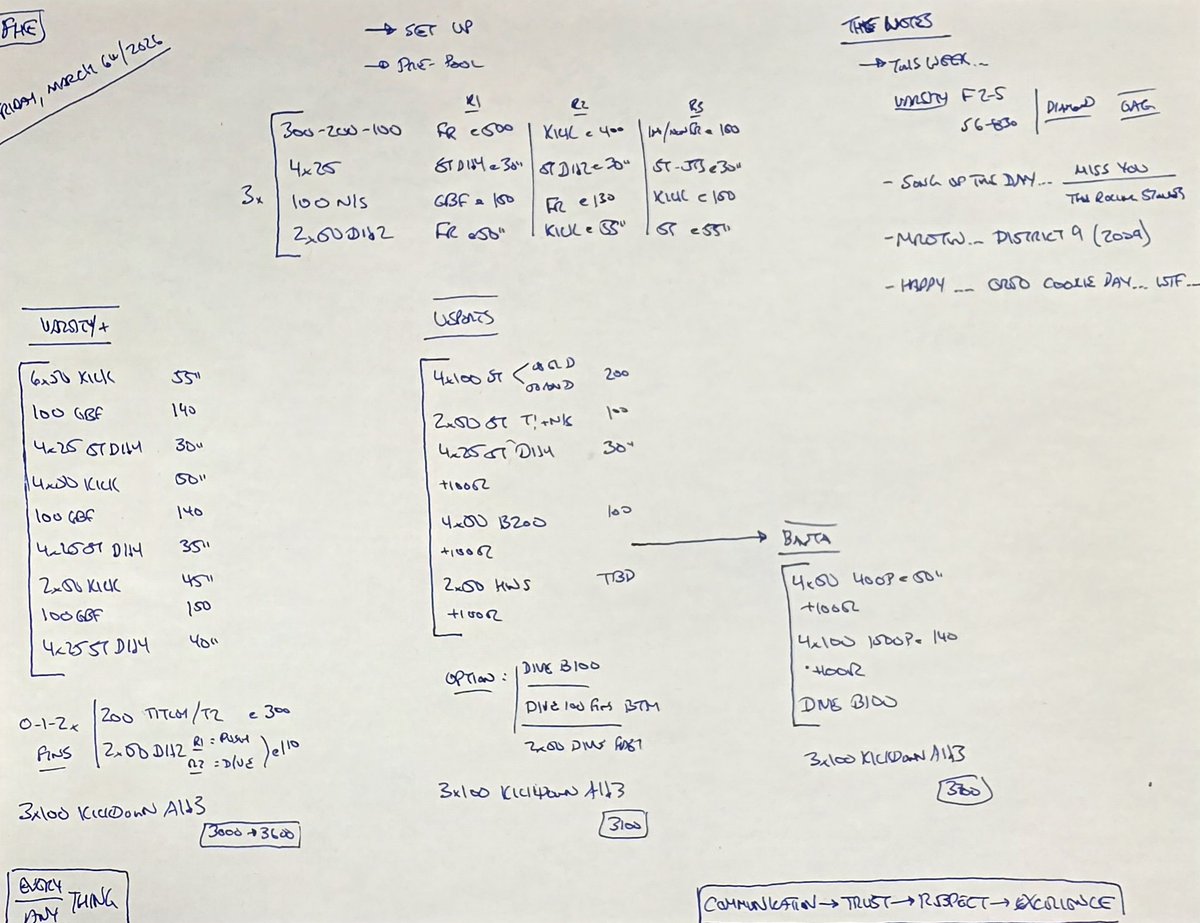 FRIDAY, MARCH 6th/2026
→ SET UP
→ PRE-POOL
R1 R2 R3
3x
300-200-100 FR @ 500 KICK @ 400
4x25 ST D1↓4 @ 30" ST D1↓2 @ 30" @ 30"
100 N/S GBF @ 150 FR @ 130 KICK @ 150
2x50 D1↓2 FR @ 50" KICK @ 55" ST @ 55"
THE NOTES
→ THIS WEEK...
VARSITY F 2-5 DIAMOND GAG
- SONG OF THE DAY... MISS YOU
THE ROLLING STONES
- MROTW... DISTRICT 9 (2009)
- HAPPY ... OREO COOKIE DAY... WTF...
VARSITY+
6x50 KICK 55"
100 GBF 140
4x25 ST D1↓4 30"
4x50 KICK 50"
100 GBF 140
4x25 ST D1↓4 35"
2x50 KICK 45"
100 GBF 150
4x25 ST D1↓4 40"
0-1-2x FINS
200 @ 300
2x50 D1↓2 R1 = PUSH R2 = DIVE @ 110
3x100 KICKDOWN A1↓3
3000 → 3600
USPORTS
4x100 ST 200
2x50 ST T! + N/S 100
4x25 ST D1↓4 30"
+100R
4x50 B200 100
+100R
2x50 HWS TBD
+100R
OPTION: DIVE B100
DIVE 100 FINS BTM
2x50 DIVE FAST
3x100 KICKDOWN A1↓3
3100
4x50 400P @ 50"
+100R
4x100 1500P @ 140
+100R
DIVE B100
3x100 KICKDOWN A1↓3
EVERY
ANY THING
COMMUNICATION → TRUST → RESPECT → EXCELLENCE